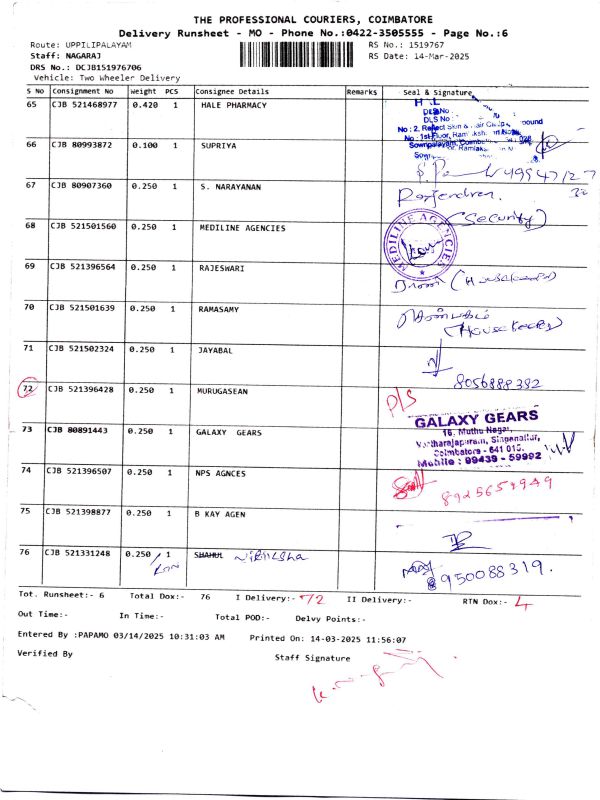 THE PROFESSIONAL COURIERS, COIMBATORE
Delivery Runsheet - MO - Phone No.:0422-3505555 - Page No.:6
Route: UPPILIPALAYAM RS No.: 1519767
Staff: NAGARAJ RS Date: 14-Mar-2025
DRS No.: DCJB151976706
Vehicle: Two Wheeler Delivery
S No Consignment No Weight PCS Consignee Details Remarks Seal & Signature
65 CJB 521468977 0.420 1 HALE PHARMACY
DLS No :
66 CJB 80993872 0.100 1 SUPRIYA
67 CJB 80907360 0.250 1 S. NARAYANAN Rajendran
(Security)
68 CJB 521501560 0.250 1 MEDILINE AGENCIES MEDILINE AGENCIES
69 CJB 521396564 0.250 1 RAJESWARI
70 CJB 521501639 0.250 1 RAMASAMY
(House keeping)
71 CJB 521502324 0.250 1 JAYABAL
8056888382
72 CJB 521396428 0.250 1 MURUGASEAN D/S
73 CJB 80891443 0.250 1 GALAXY GEARS GALAXY GEARS
16, Muthu Nagar,
Varatharajapuram, Singanallur,
Coimbatore - 641 015.
Mobile : 99439 - 59992
74 CJB 521396507 0.250 1 NPS AGNCES
75 CJB 521398877 0.250 1 B KAY AGEN
76 CJB 521331248 0.250 1 SHAHUL
950088319.
Tot. Runsheet:- 6 Total Dox:- 76 I Delivery:- 72 II Delivery:- RTN Dox:- 4
Out Time:- In Time:- Total POD:- Delvy Points:-
Entered By :PAPAMO 03/14/2025 10:31:03 AM Printed On: 14-03-2025 11:56:07
Verified By Staff Signature